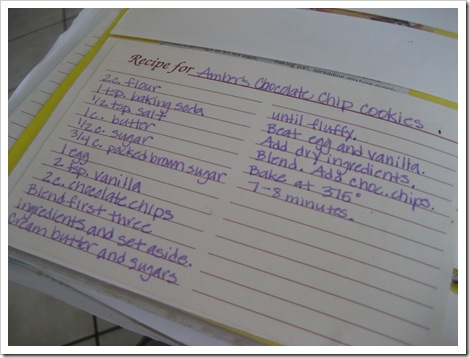 Recipe for Amber's Chocolate Chip cookies
2c. flour
1 tsp. baking soda
1/2 tsp salt
1 c. butter
1/2 c. sugar
3/4 c. packed brown sugar
1 egg
2 tsp. vanilla
2c. chocolate chips
Blend first three
ingredients and set aside.
Cream butter and sugars
until fluffy.
Beat egg and vanilla.
Add dry ingredients.
Blend. Add choc. chips.
Bake at 375°
7-8 minutes.